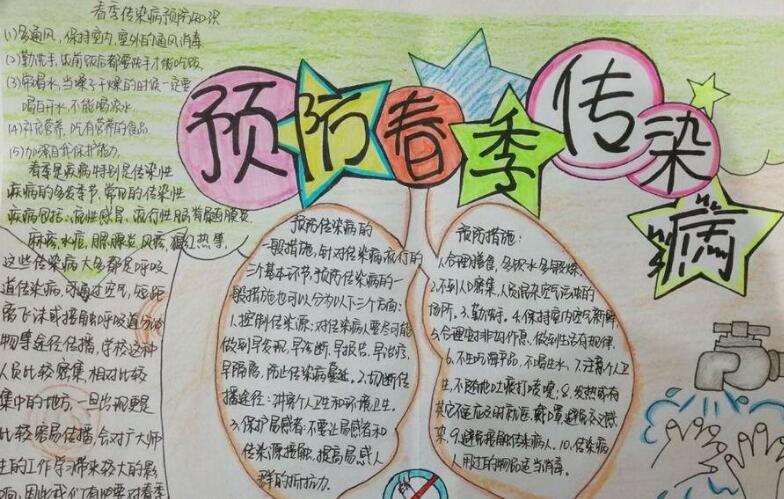 预防春季传染病
春季传染病预防知识
(1)多通风,保持室内,室外的通风消毒
(2)勤洗手,饭前饭后都要洗手才能吃饭
(3)常喝水,当嗓子干燥的时候一定要
喝白开水,不能喝凉水
(4)补充营养,吃有营养的食品
(5)加深自我保护能力.
春季是疾病特别是传染性
疾病的多发季节,常见的传染性
疾病包括:流性感冒,流行性脑脊髓膜炎.
麻疹,水痘,腮腺炎,风疹,猩红热等,
这些传染病大多都是呼吸
道传染病,可通过空气,短距
离飞沫或接触呼吸道分泌
物等途径传播,学校这种
人员比较密集,相对比较
集中的地方.一旦出现更是
比较容易传播,会对广大师
生的工作学习带来较大的影
响,因此我们有必要对春季
预防传染病的
一般措施,针对传染病流行的
三个基本环节,预防传染病的一
般措施也可以分为以下三个方面:
1.控制传染源:对传染病人要尽可能
做到早发现,早诊断,早报告,早治疗,
早隔离,防止传染病蔓延。2.切断传
播途径:讲究个人卫生和环境卫生。
3.保护易感者:不要让易感者和
传染源接触,提高易感人
群的抵抗力.
预防措施:
1.合理膳食,多饮水多锻炼.
2.不到人口密集,人员混杂空气污染的
场所。3.勤洗手。4.保持室内空气新鲜.
5.合理安排非息作息,做到生活有规律.
6.不生吃海产品,不喝生水,7.注意个人卫
生,不随地吐痰打喷嚏;8.发热或有
其它不适应及时就医,戴口罩,避免交叉感
染。9.避免接触传染病人。10.传染病
人用过的物品适当消毒.